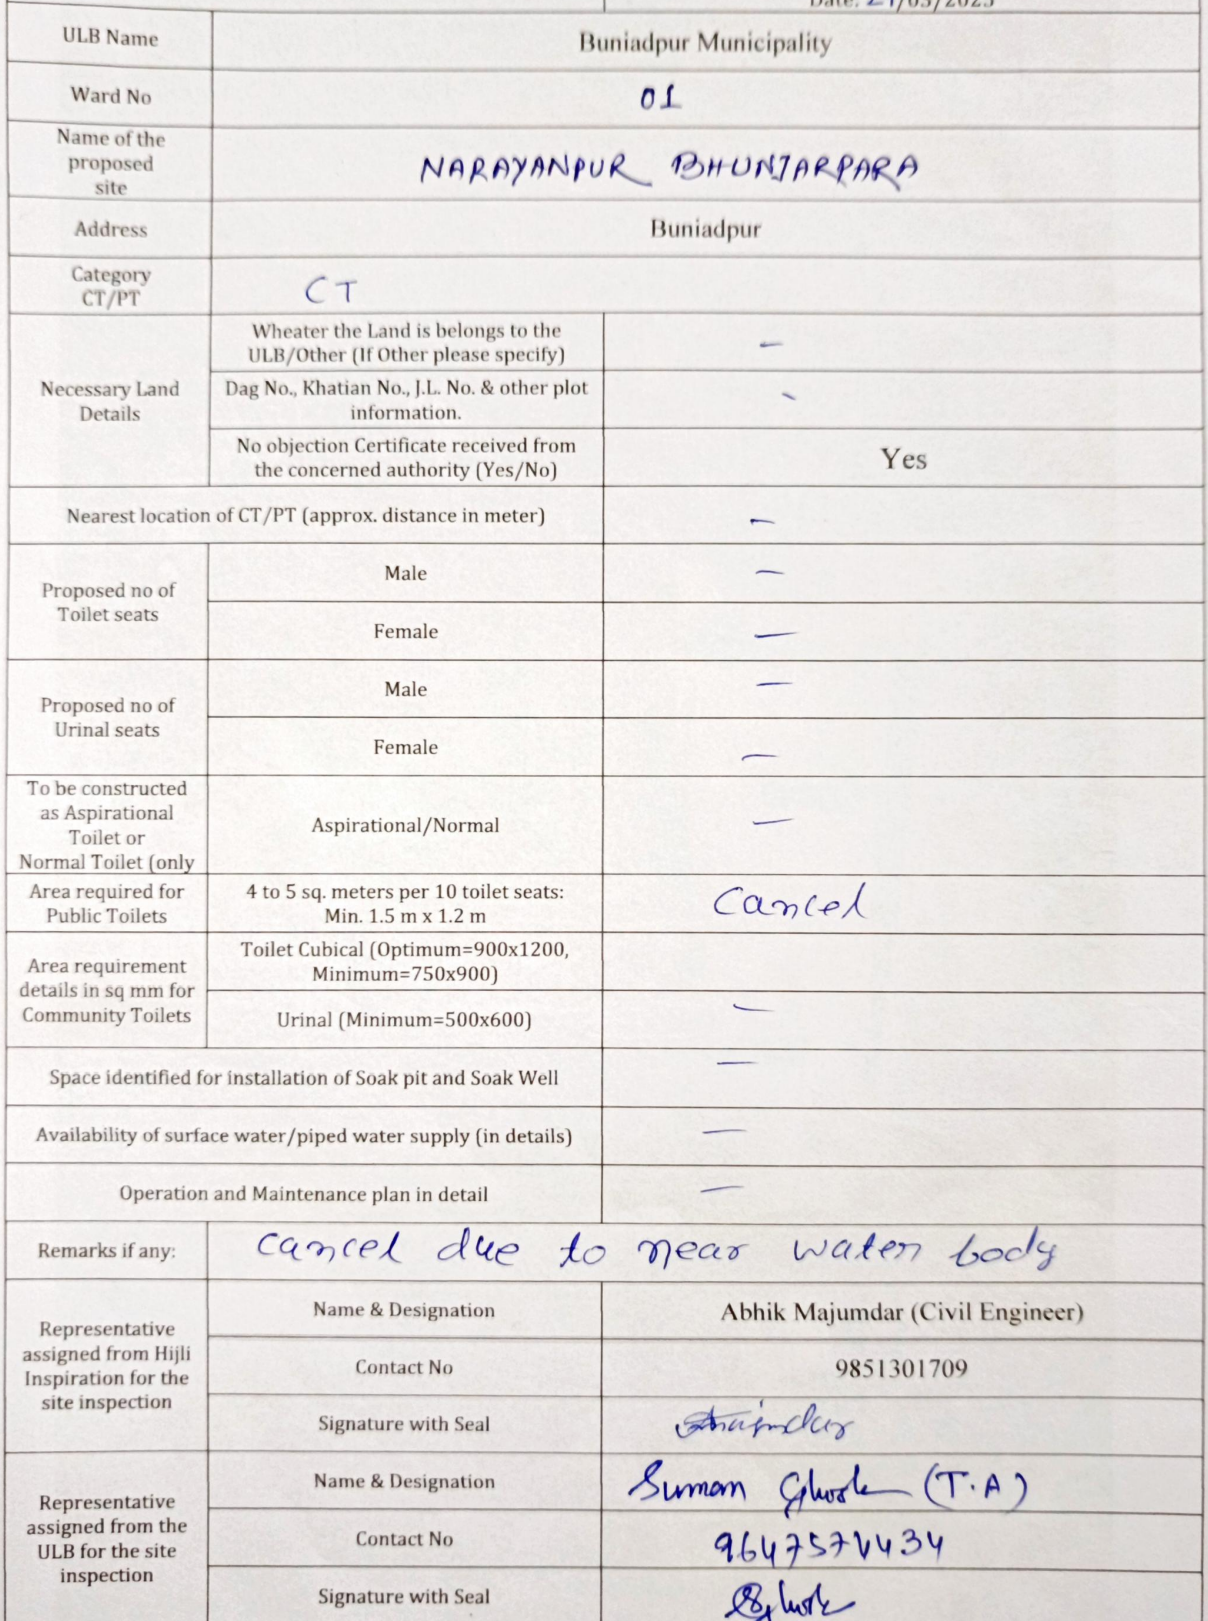 Date: 21/03/2025
ULB Name
Buniadpur Municipality
Ward No
01
Name of the
proposed
site
NARAYANPUR BHUNJARPARA
Address
Buniadpur
Category
CT/PT
CT
Necessary Land
Details
Wheater the Land is belongs to the
ULB/Other (If Other please specify)
—
Dag No., Khatian No., J.L. No. & other plot
information.
-
No objection Certificate received from
the concerned authority (Yes/No)
Yes
Nearest location of CT/PT (approx. distance in meter)
—
Proposed no of
Toilet seats
Male
—
Female
—
Proposed no of
Urinal seats
Male
—
Female
—
To be constructed
as Aspirational
Toilet or
Normal Toilet (only
Aspirational/Normal
—
Area required for
Public Toilets
4 to 5 sq. meters per 10 toilet seats:
Min. 1.5 m x 1.2 m
Cancel
Area requirement
details in sq mm for
Community Toilets
Toilet Cubical (Optimum=900x1200,
Minimum=750x900)
Urinal (Minimum=500x600)
—
Space identified for installation of Soak pit and Soak Well
—
Availability of surface water/piped water supply (in details)
—
Operation and Maintenance plan in detail
—
Remarks if any:
cancel due to near water body
Representative
assigned from Hijli
Inspiration for the
site inspection
Name & Designation
Abhik Majumdar (Civil Engineer)
Contact No
9851301709
Signature with Seal
Representative
assigned from the
ULB for the site
inspection
Name & Designation
Suman Ghosh (T.A)
Contact No
9647574434
Signature with Seal